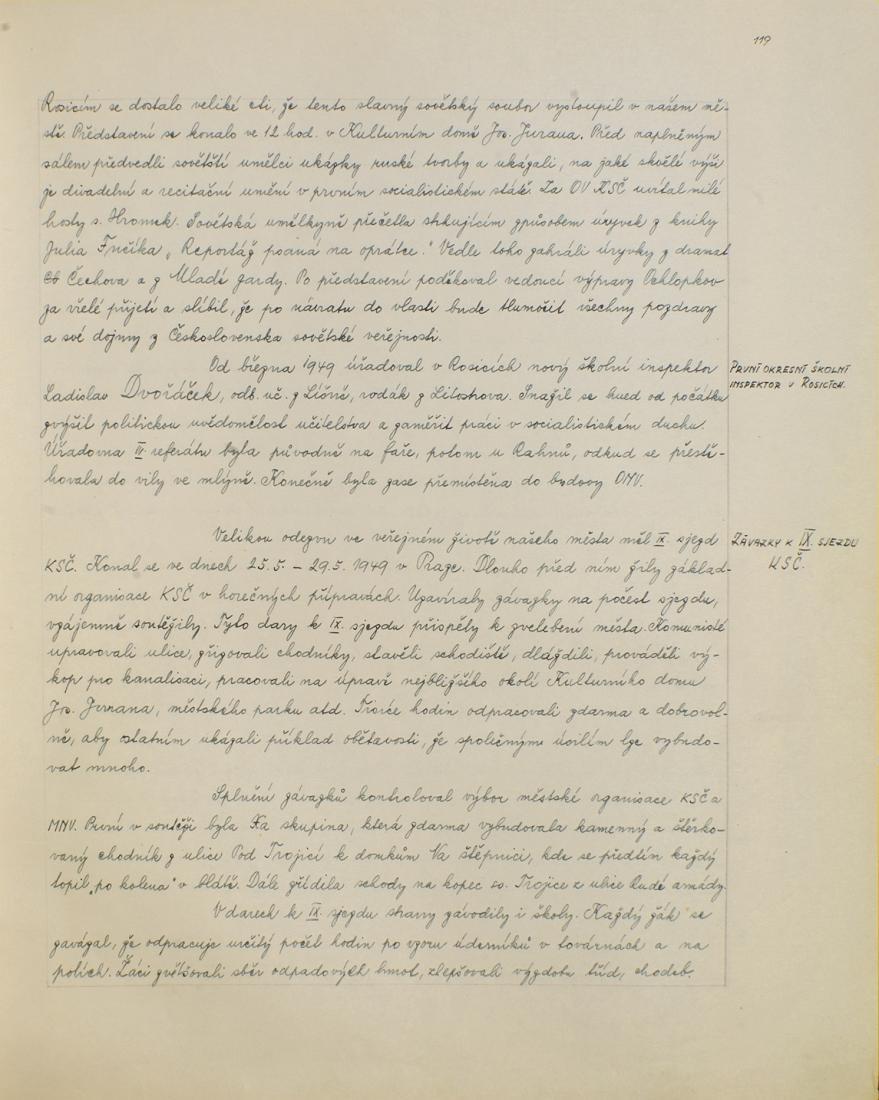 119
Rosicím se dostalo veliké cti, že tento slavný sovětský soubor vystoupil v našem mě-
stě. Představení se konalo ve 12 hod. v Kulturním domě Jos. Jurana. Před naplněným
sálem předvedli sovětští umělci ukázky ruské tvorby a ukázali, na jaké skvělé výši
je divadelní a recitační umění v prvním socialistickém státě. Za OV KSČ uvítal milé
hosty s. Hromek. Sovětská umělkyně přečetla strhujícím způsobem úryvek z knihy
Julia Fučíka „Reportáž psaná na oprátce." Vedle toho zahráli úryvky z dramat
Čechova a z Mladé gardy. Po představení poděkoval vedoucí výpravy Ochlopkov
za vřelé přijetí a slíbil, že po návratu do vlasti bude tlumočit všechny pozdravy
a své dojmy z Československa sovětské veřejnosti.
Od března 1949 úřadoval v Rosicích nový školní inspektor
PRVNÍ OKRESNÍ ŠKOLNÍ
INSPEKTOR V ROSICÍCH.
Ladislav Dvořáček, odb. uč. z Líšně, rodák z Litostrova. Snažil se hned od počátku
zvýšit politickou uvědomělost učitelstva a zaměřit práci v socialistickém duchu.
Úřadovna IV. referátu byla původně na faře, potom u Rahnů, odkud se přestě-
hovala do vily ve mlýně. Konečně byla zase přemístěna do budovy ONV.
Velikou odezvu ve veřejném životě našeho města měl IX. sjezd
ZÁVAZKY K IX. SJEZDU
KSČ.
KSČ. Konal se ve dnech 25.5. – 29.5. 1949 v Praze. Dlouho před ním žily základ-
ní organisace KSČ v horečných přípravách. Uzavíraly závazky na počest sjezdu,
vzájemně soutěžily. Tyto dary k IX. sjezdu přispěly k zvelebení města. Komunisté
upravovali ulice, zřizovali chodníky, stavěli schodiště, dláždili, prováděli vý-
kop pro kanalisaci, pracovali na úpravě nejbližšího okolí Kulturního domu
Jos. Jurana, městského parku atd. Tisíce hodin odpracovali zdarma a dobrovol-
ně, aby ostatním ukázali příklad obětavosti, že společným úsilím lze vybudo-
vat mnoho.
Splnění závazků kontroloval výbor městské organisace KSČ a
MNV. První v soutěži byla Xa skupina, která zdarma vybudovala kamenný a štěrko-
vaný chodník z ulice Pod Trojicí k domkům Na štěpnici, kde se předtím každý
topil „po kolena" v blátě. Dále zřídila schody na kopec sv. Trojice z ulice Rudé armády.
V darech k IX. sjezdu strany závodily i školy. Každý žák se
zavázal, že odpracuje určitý počet hodin po vzoru úderníků v továrnách a na
polích. Žáci zvětšovali sběr odpadových hmot, zlepšovali výzdobu tříd, chodeb.